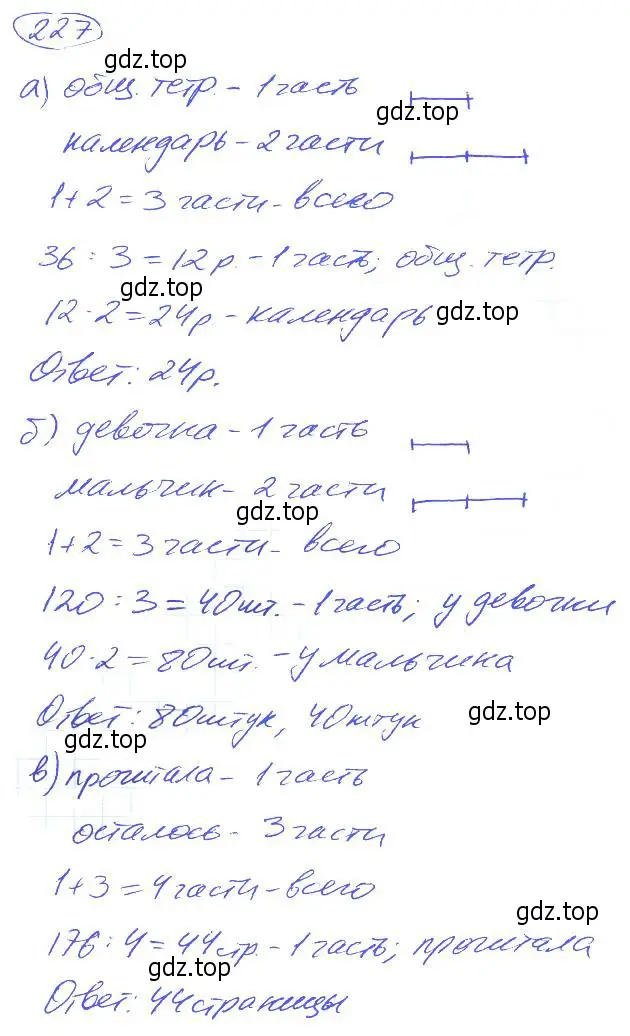 227
gdz.top
а) общ. тетр. - 1 часть
gdz.top
календарь - 2 части
1+2=3 части - всего
36 : 3 = 12 р. - 1 часть; общ. тетр.
gdz.top
12 · 2 = 24 р - календарь
gdz.top
Ответ: 24 р.
б) девочка - 1 часть
мальчик - 2 части
gdz.top
1+2=3 части - всего
120 : 3 = 40 шт. - 1 часть; у девочки
40 · 2 = 80 шт. - у мальчика
Ответ: 80 штук, 40 штук
gdz.top
gdz.top
в) прочитала - 1 часть
осталось - 3 части
1+3=4 части - всего
gdz.top
176 : 4 = 44 стр. - 1 часть; прочитала
gdz.top
Ответ: 44 страницы